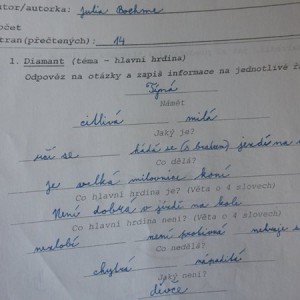 utor/autorka: Julia Boehme
očet
tran(přečtených): 14
1. Diamant (téma - hlavní hrdina)
Odpověz na otázky a zapiš informace na jednotlivé ř
Týna
Námět
citlivá milá
Jaký je?
učí se hádá se (s bratem) jezdí na
Co dělá?
Je velká milovnice koní
Co hlavní hrdina je? (Věta o 4 slovech)
Není dobrá v jízdě na kole
Co hlavní hrdina není? (Věta o 4 slovech)
nezlobí není protivná
Co nedělá?
chytrá nápaditá
Jaký není?
dívce